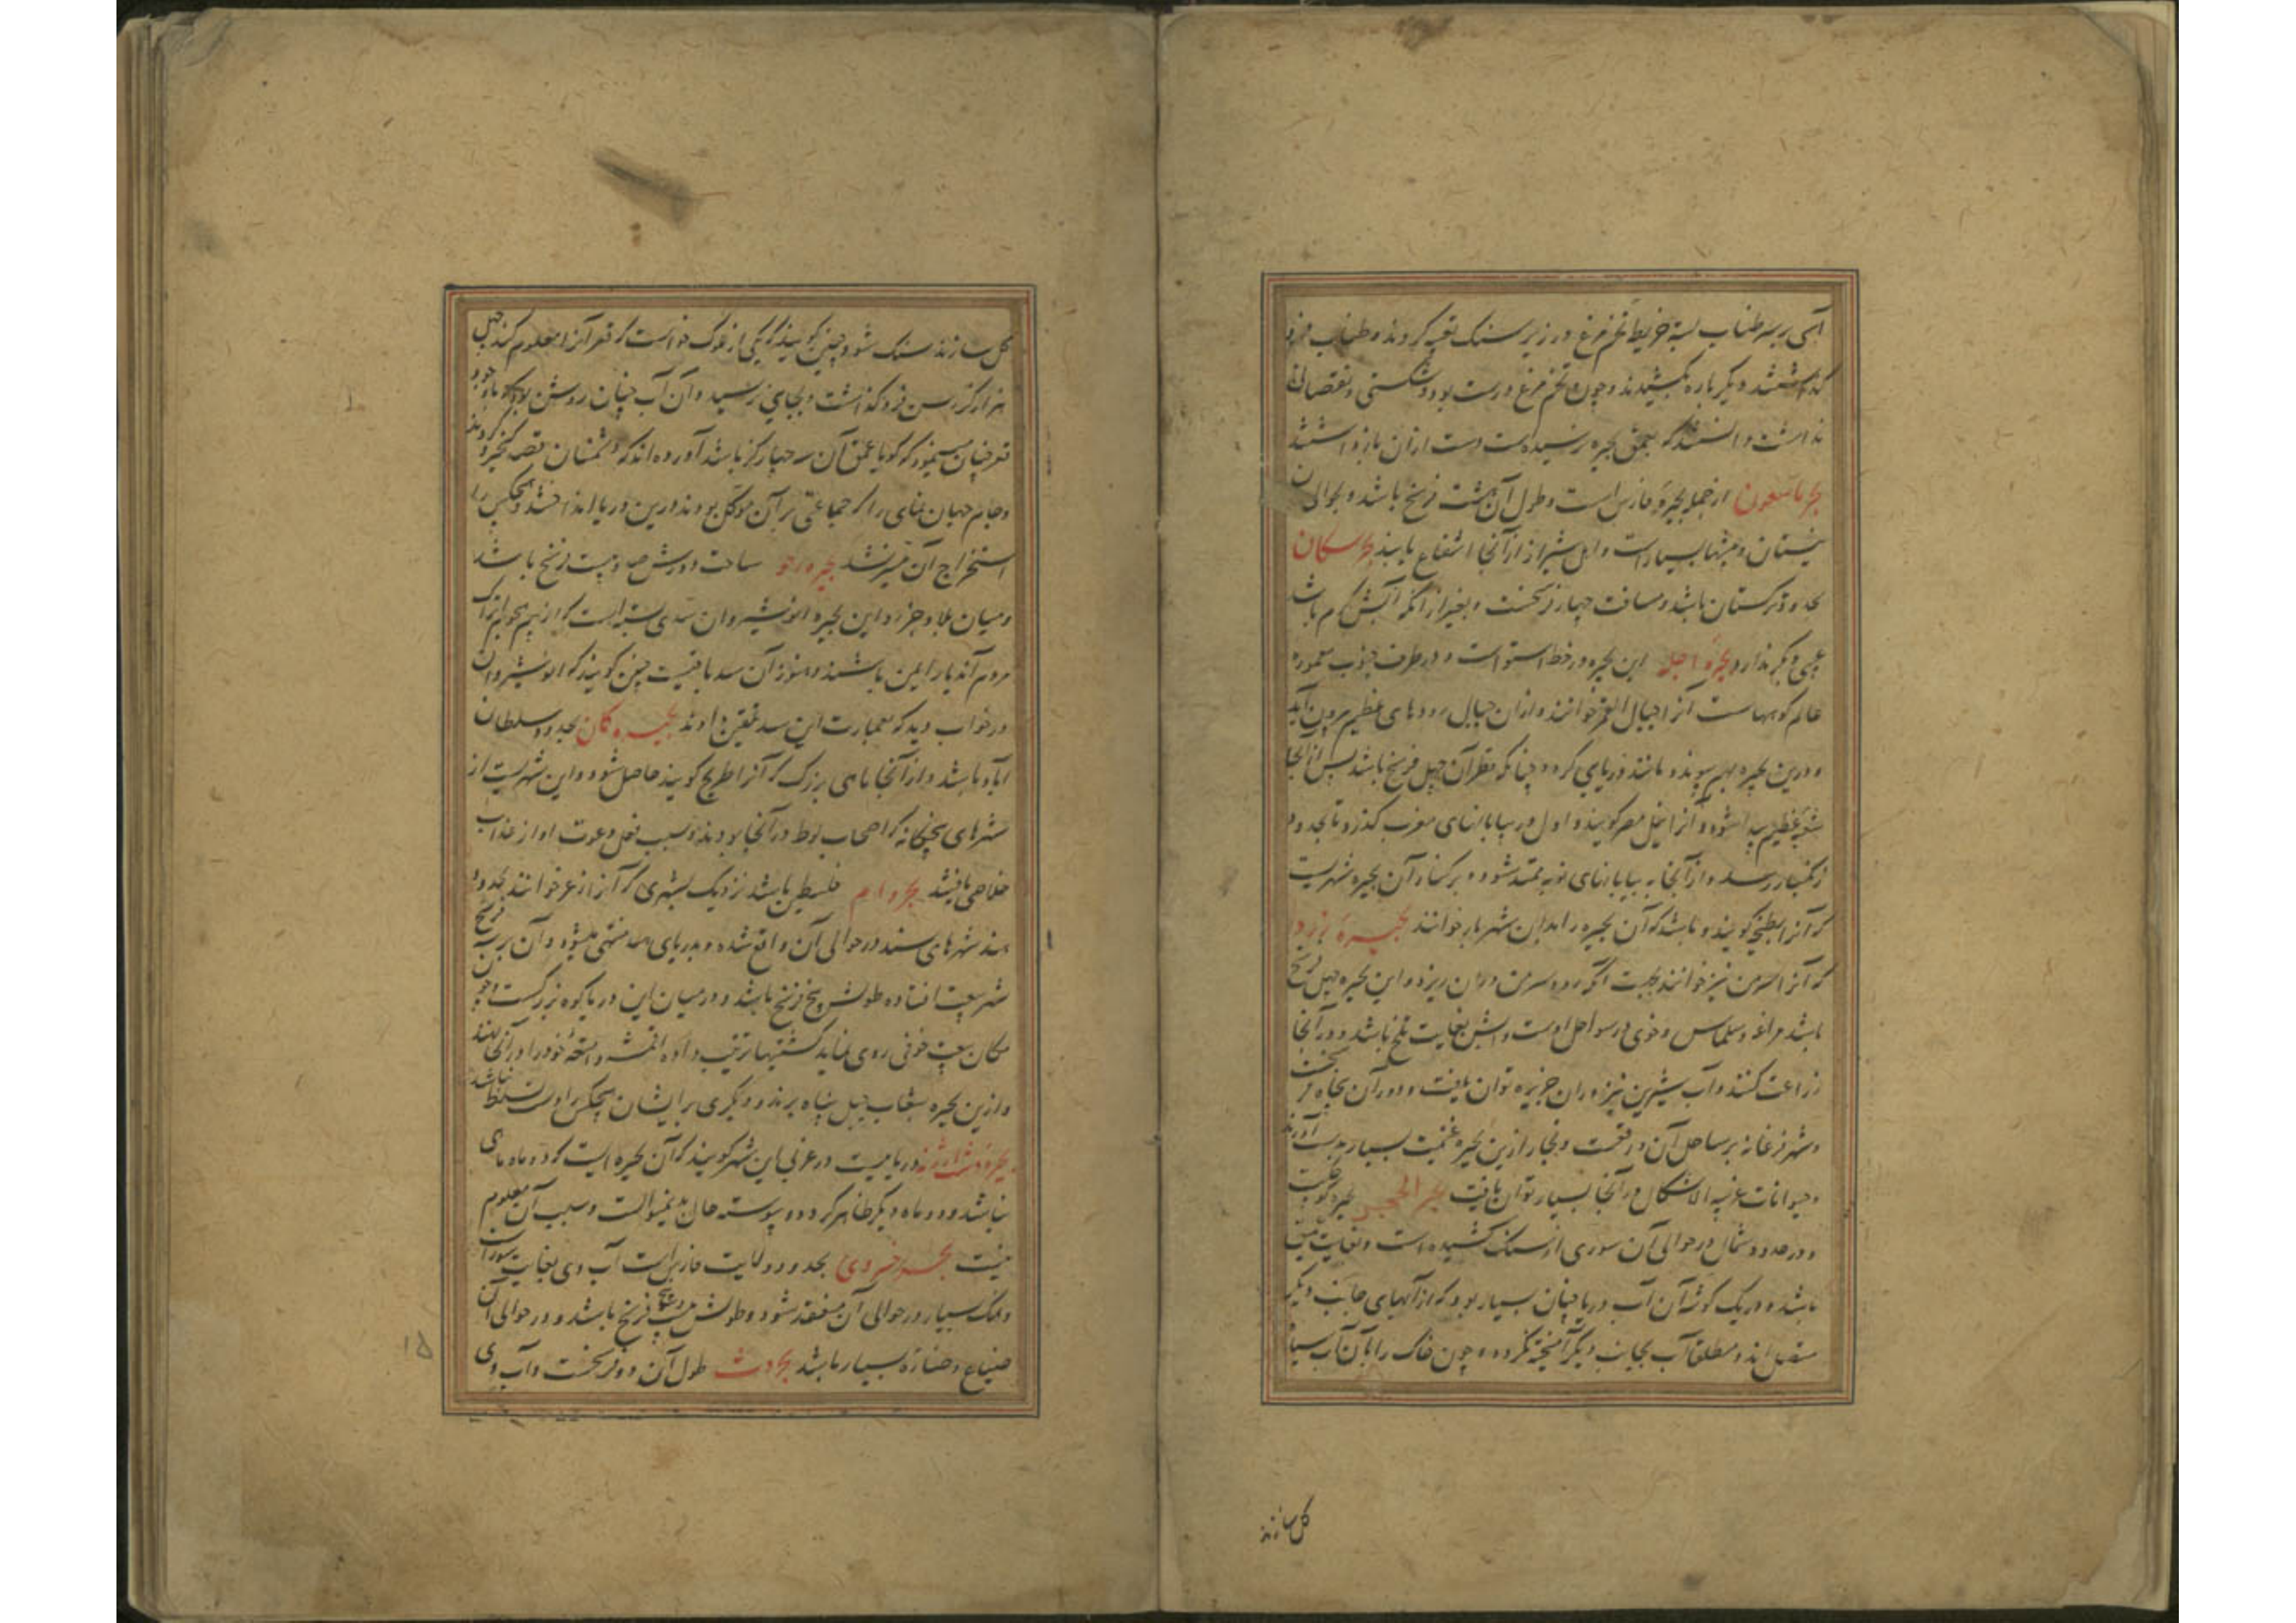 بر سر طناب بسته خریطه تخم مرغ در زیر سنک تعبیه کردند و طناب فرو
دیگر باره بکشیدند و چون تخم مرغ درست بود و شکستی و نقصانی
نداشت دانستند که بعمق بحیره نرسیده است دست از آن باز داشتند
از جمله بحیره فارس است و طول آن هشت فرسخ باشد و بحوالی آن
نیستان و بیشها بسیار است و اهل شیراز از آنجا انتفاع یابند
بحدود ترکستان باشد و مسافت چهار فرسخست و بغیر از آنکه آبش گرم باشد
دیگر ندارد این بحیره در خط استواست و در طرف جنوب معموره
عالم کوههاست آنرا جبال القمر خوانند و از آن جبال رودهای عظیم بیرون آید
و درین بحیره بهم پیوندد مانند دریایی گردد چنانکه قطر آن چهل فرسخ باشد پس از آنجا
عظیم پیدا شود و آنرا نیل مصر گویند و اول در بیابانهای مغرب گذرد تا بحدود
زنگبار رسد و از آنجا به بیابانهای نوبه ممتد شود و بر کنار آن بحیره شهریست
که آنرا گویند و باشد که آن بحیره را بدان شهر باز خوانند بحیرهٔ
که آنرا نیز خوانند بجهت آنکه رود در آن ریزد و این بحیره چهل فرسخ
باشد مراغه و سلماس و خوی در سواحل اوست و آبش بغایت تلخ باشد و در آنجا
زراعت کنند و آب شیرین نیز در آن جزیره توان یافت و دور آن پنجاه فرسخست
و شهر فرغانه بر ساحل آن و تجار ازین بحیره غنیمت بسیار بدست آورند
و حیوانات غریبه الاشکال در آنجا بسیار توان یافت بحر الحجر بحیره
و در حدود شمال در حوالی آن سوری از سنک کشیده است و بغایت
باشد و در یک گوشهٔ آن آب دریا چنان بسیار بود که از آبهای جانب دیگر
منفصل اند و مطلقا آب بجانب دیگر آمیخته نگردد و چون خاک را با آن آب
گل سازند
گل سازند سنک شود و چنین گویند که یکی از ملوک خواست که قعر آنرا معلوم کند چهل
هزار گز رسن فرو گذاشت و بجایی نرسید و آن آب چنان روشن بود که
قعر چنان مینمود که گویا عمق آن سه چهار گز باشد آورده اند که دشمنان قصد کیخسرو کردند
و جام جهان نمای را که جماعتی بر آن موکل بودند درین دریا انداختند و هیچکس را
استخراج آن میسر نشد ساحت دورش صد و بیست فرسخ باشد
و میان بلاد خزر و این بحیره انوشیروان سدی بسته است که از بیم هجوم اتراک
مردم آن دیار ایمن باشند و هنوز آن سد باقیست چنین گویند که انوشیروان
در خواب دید که بعمارت این سد تلقین دادند بحیره بحدود سلطان
آباد باشد و از آنجا ماهی بزرک که آنرا طریخ گویند حاصل شود و این شهریست از
شهرهای پنجگانه که اصحاب لوط در آنجا بودند و بسبب دعوت او از عذاب
خلاصی یافتند فلسطین باشد نزدیک بشهری که آنرا زغر خوانند بحدود
هند شهرهای سند در حوالی آن واقع شده و بدریای منتهی میشود و آن
افتاده طولش پنج فرسخ باشد و در میان این دریا کوه بزرگست و چون
مکان خوفی روی نماید کشتیها ترتیب داده اقمشه و امتعهٔ خود را در آنجا نهند
و ازین بحیره بشعاب جبل پناه برند و دیگری بر ایشان تسلط نباشد
دریاییست در غربی این شهر گویند که آن بحیره ایست که دو ماه ماهی
نباشد و دو ماه دیگر ظاهر گردد و پیوسته حال بدین منوالست و سبب آن معلوم
نیست بحدود ولایت فارس است آب وی بغایت شور است
و نمک بسیار در حوالی آن منعقد شود و طولش فرسخ باشد و در حوالی آن
ضیاع بسیار باشد طول آن ده فرسخست و آب وی